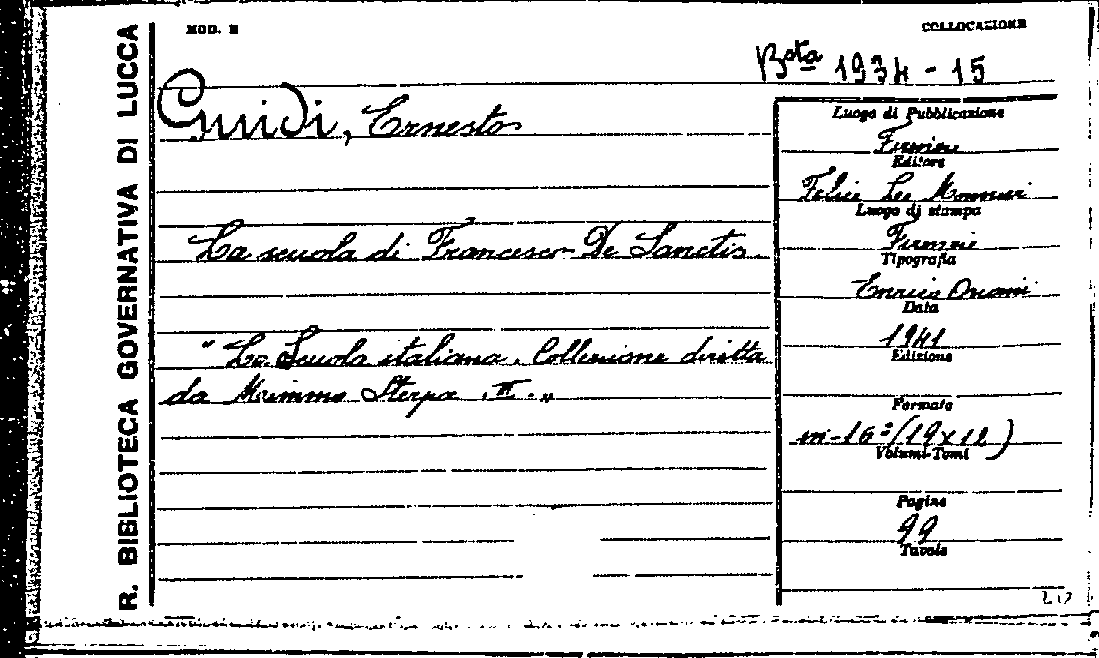 MOD. E
COLLOCAZIONE
R. BIBLIOTECA GOVERNATIVA DI LUCCA
Bsta 1934-15
Guidi, Ernesto
La scuola di Francesco De Sanctis
"La Scuola italiana. Collezione diretta
da Mimmo Sterpa . II."
Luogo di Pubblicazione
Firenze
Editore
Felice Le Monnier
Luogo di stampa
Firenze
Tipografia
Enrico Ariani
Data
1941
Edizione
Formato
in-16° (19x12)
Volumi-Tomi
Pagine
99
Tavole